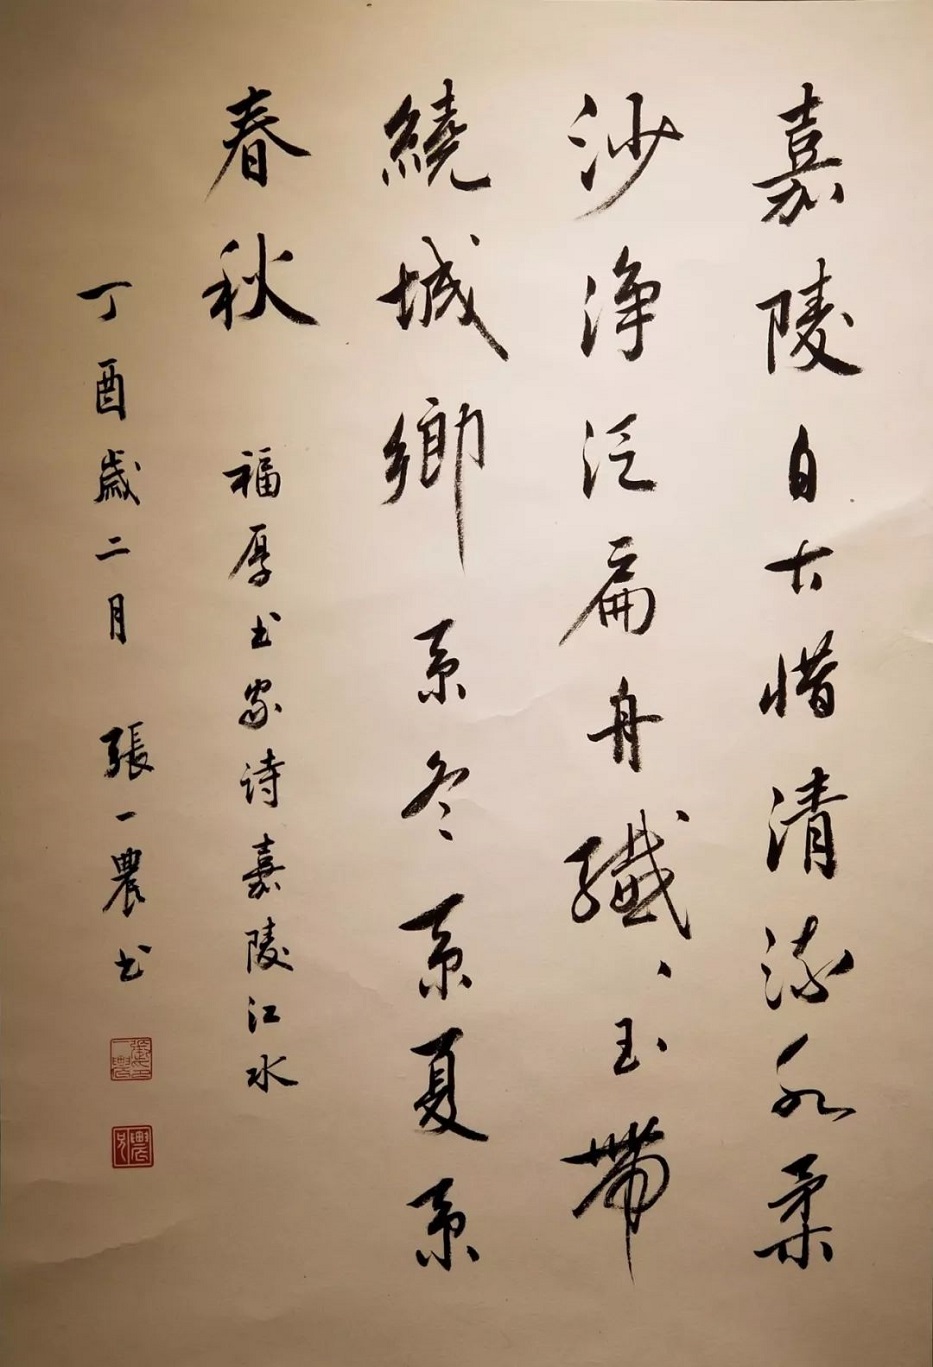 嘉陵自古惜清流水柔
沙净泛扁舟纖、玉帶
繞城鄉系冬系夏系
春秋
福厚书家诗嘉陵江水
丁酉歲二月 張一農书